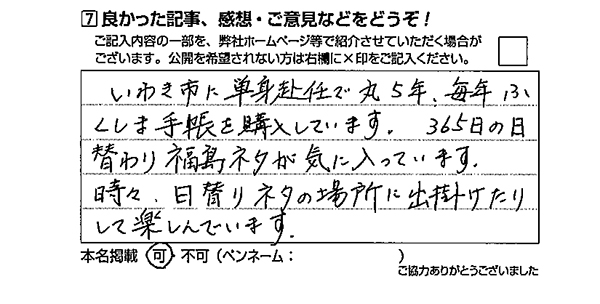 7 良かった記事、感想・ご意見などをどうぞ！
ご記入内容の一部を、弊社ホームページ等で紹介させていただく場合が
ございます。公開を希望されない方は右欄に×印をご記入ください。
いわき市に単身赴任で丸5年、毎年ふ
くしま手帳を購入しています。 365日の日
替わり福島ネタが気に入っています。
時々、日替りネタの場所に出掛けたり
して楽しんでいます。
本名掲載 可・不可（ペンネーム： ）
ご協力ありがとうございました